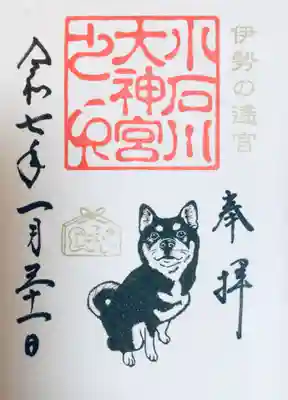 伊勢の遥宮
奉拝
小石川
大神宮
之印
令和七年一月三十一日